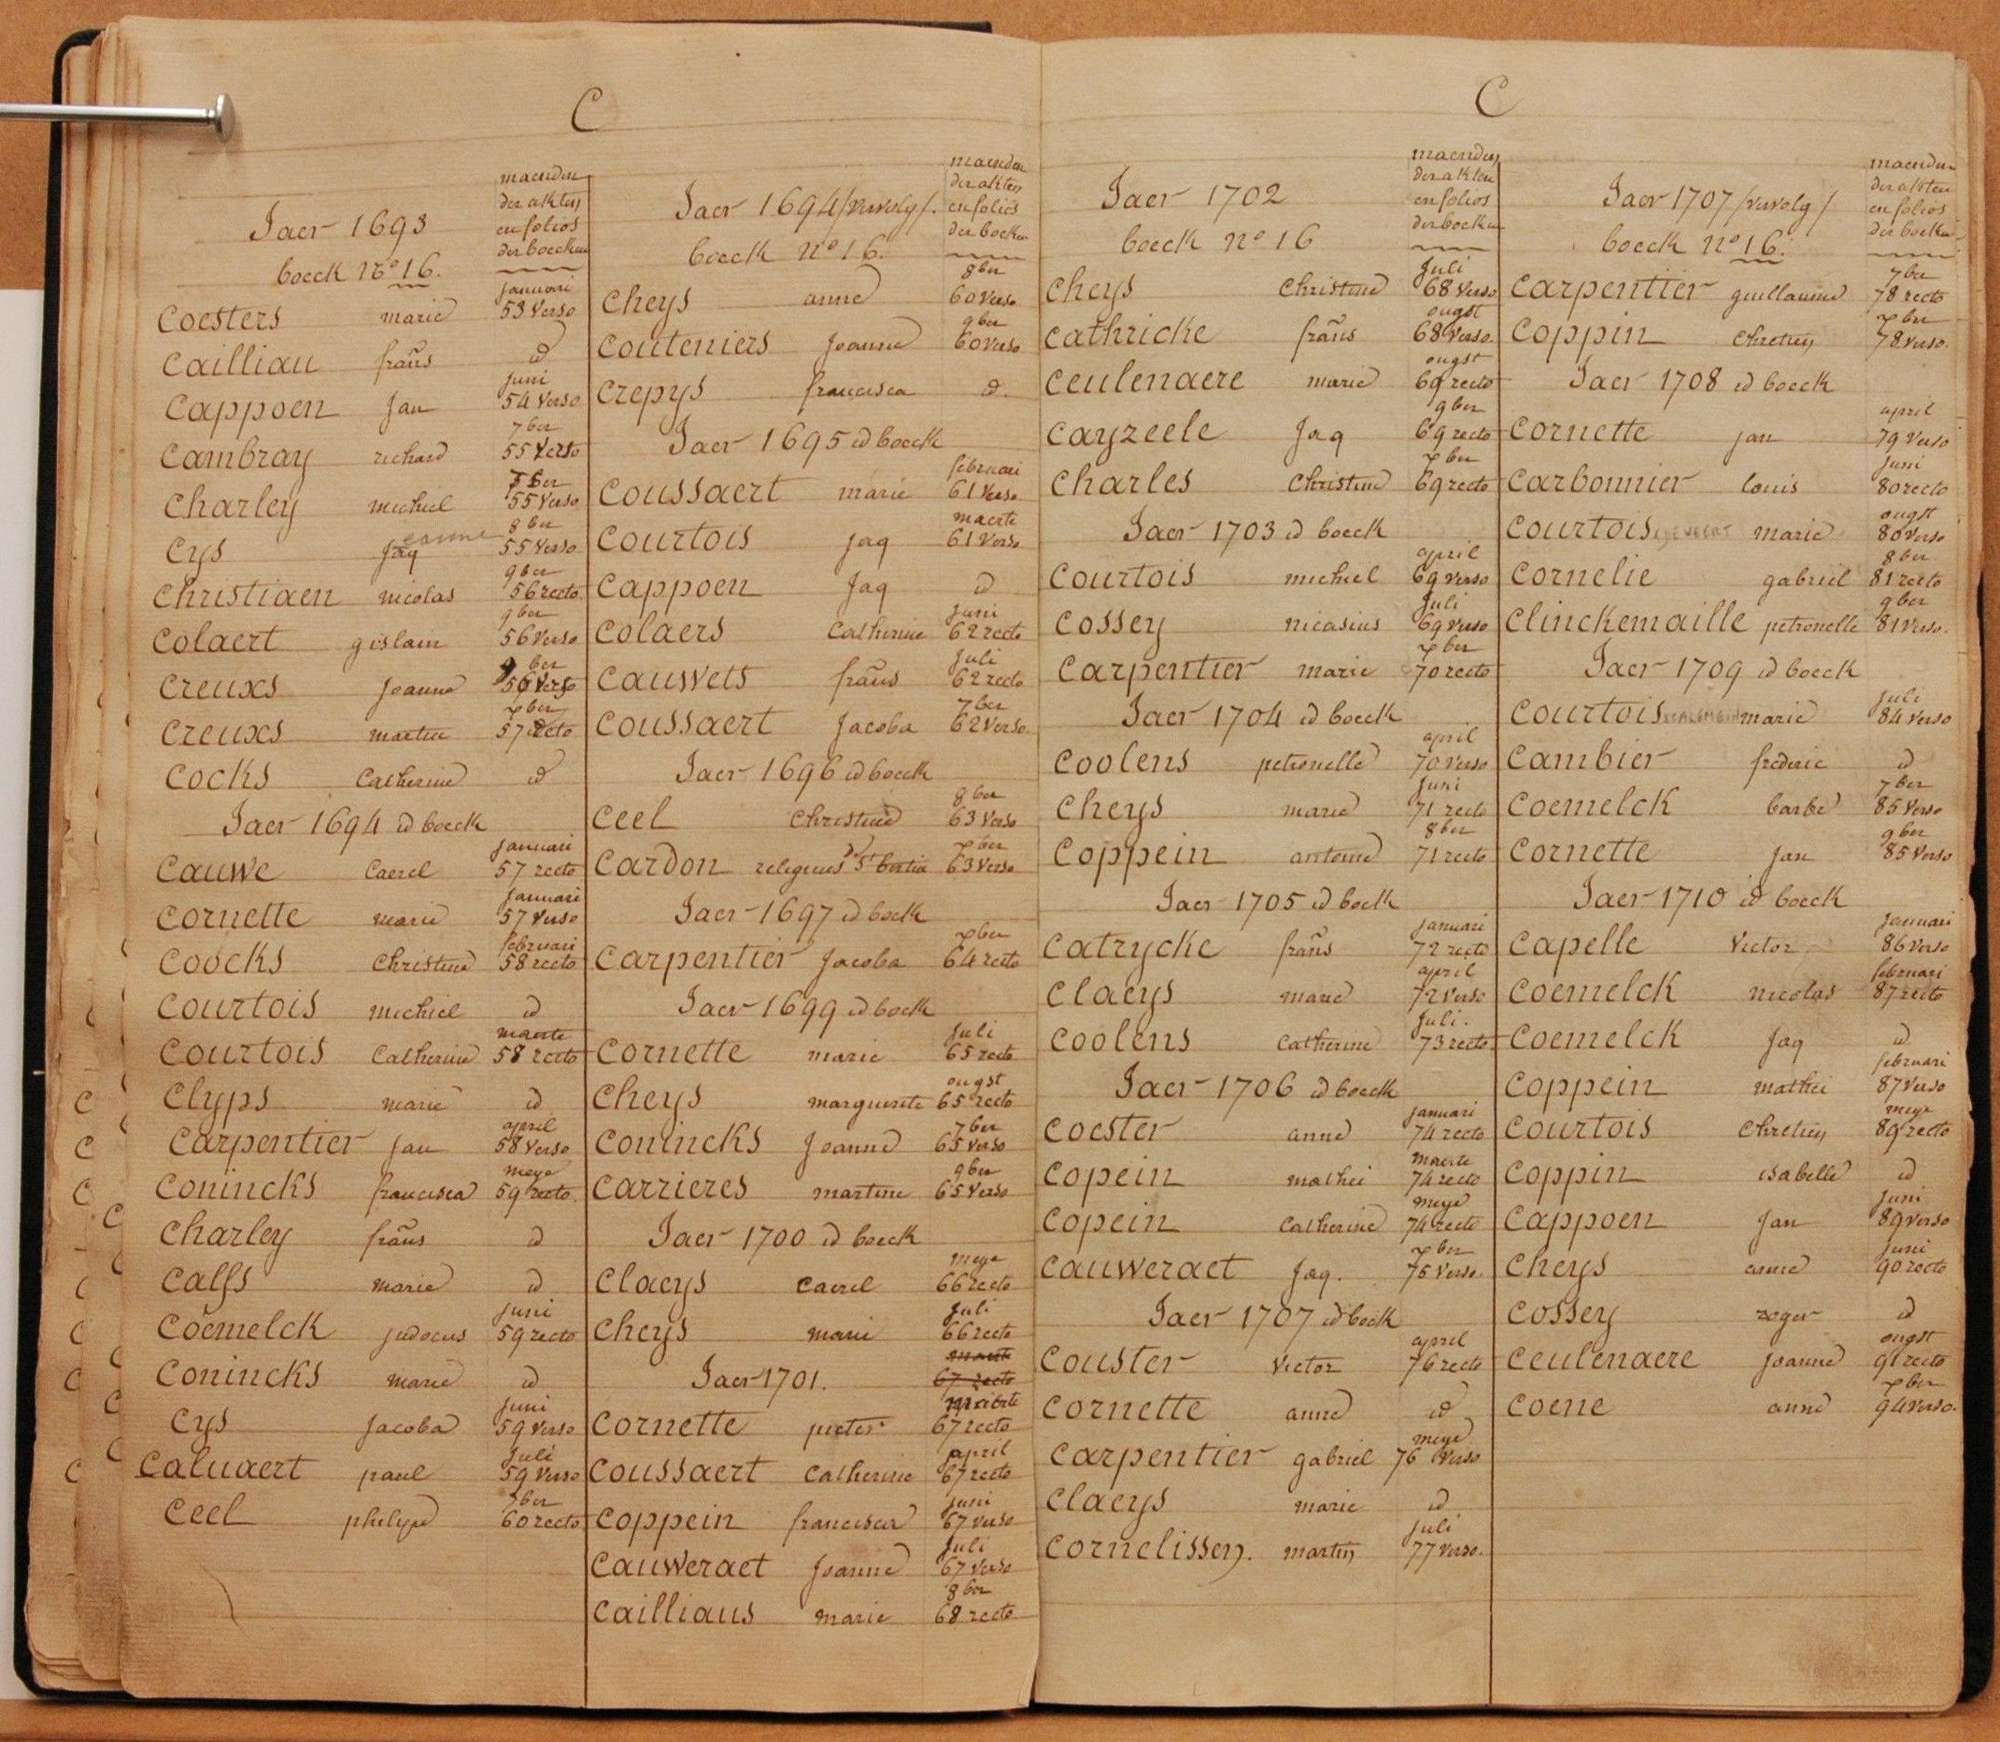 C
Jaer 1693
boeck no 16.
maenden
der akten
en folios
der boecken
januari
Coesters marie 53 verso
Cailliau frans id
juni
Cappoen jan 54 verso
7ber
Cambray richard 55 verso
7ber
Charley michiel 55 verso
8ber
Cys jaq 55 verso
9ber
Christiaen nicolas 56 recto
9ber
Colaert gislain 56 verso
9ber
Creuxs joanne 56 verso
xber
Creuxs martin 57 recto
Cocks Catherine id
Jaer 1694 id boeck
januari
Cauwe Caerel 57 recto
januari
Cornette marie 57 verso
februari
Coocks Christine 58 recto
Courtois michiel id
maerte
Courtois Catherine 58 recto
Clyps marie id
april
Carpentier jan 58 verso
meye
Conincks francisca 59 recto
Charley frans id
Calfs marie id
juni
Coemelck judocus 59 recto
Conincks marie id
juni
Cys jacoba 59 verso
juli
Caluaert paul 59 verso
7ber
Ceel philype 60 recto
Jaer 1694 /vervolg/.
boeck no 16.
maenden
der akten
en folios
der boeken
8ber
Cheys anne 60 verso
9ber
Couteniers joanne 60 verso
Crepys francisca id.
Jaer 1695 id boeck
februari
Coussaert marie 61 verso
maerte
Courtois jaq 61 verso
Cappoen jaq id
juni
Colaers Catherine 62 recto
juli
Cauwets frans 62 recto
7ber
Coussaert jacoba 62 verso.
Jaer 1696 id boeck
8ber
Ceel Christine 63 verso
xber
Cardon religieus de St bertin 63 verso
Jaer 1697 id boeck
xber
Carpentier jacoba 64 recto
Jaer 1699 id boeck
juli
Cornette marie 65 recto
ougst
Cheys marguerite 65 recto
7ber
Conincks joanne 65 verso
9ber
Carrieres martine 65 verso
Jaer 1700 id boeck
meye
Claeys Caerel 66 recto
juli
Cheys marie 66 recto
maerte
Jaer 1701. 67 recto
maerte
Cornette pieter 67 recto
april
Coussaert Catherine 67 recto
juni
Coppein francisca 67 verso
juli
Cauweraet joanne 67 verso
8ber
Cailliaus marie 68 recto
C
Jaer 1702
boeck no 16
maenden
der akten
en folios
der boeken
juli
Cheys Christine 68 verso
ougst
Cathricke frans 68 verso.
ougst
Ceulenaere marie 69 recto
9ber
Cayzeele jaq 69 recto
xber
Charles Christine 69 recto
Jaer 1703 id boeck
april
Courtois michiel 69 verso
juli
Cossey nicasius 69 verso
xber
Carpentier marie 70 recto
Jaer 1704 id boeck
april
Coolens petronelle 70 verso
juni
Cheys marie 71 recto
8ber
Coppein antoine 71 recto
Jaer 1705 id boeck
januari
Catrycke frans 72 recto
april
Claeys marie 72 verso
juli.
Coolens Catherine 73 recto
Jaer 1706 id boeck
januari
Coester anne 74 recto
maerte
Copein mathei 74 recto
meye
Copein Catherine 74 recto
xber
Cauweraet jaq. 75 verso.
Jaer 1707 id boeck
april
Couster victor 76 recto
Cornette anne id
meye
Carpentier gabriel 76 verso
Claeys marie id
juli
Cornelissen. martin 77 verso.
Jaer 1707 /vervolg/
boeck no 16.
maenden
der akten
en folios
der boeken
7ber
Carpentier guillaume 78 recto
xber
Coppin Chretien 78 verso.
Jaer 1708 id boeck
april
Cornette jan 79 verso
juni
Carbonnier louis 80 recto
ougst
Courtois marie 80 verso
8ber
Cornelie gabriel 81 recto
9ber
Clinckemaille petronelle 81 verso.
Jaer 1709 id boeck
juli
Courtois marie 84 verso
Cambier frederic id
7ber
Coemelck barbe 85 verso
9ber
Cornette jan 85 verso
Jaer 1710 id boeck
januari
Capelle victor 86 verso
februari
Coemelck nicolas 87 recto
Coemelck jaq id
februari
Coppein mathei 87 verso
meye
Courtois Chretien 89 recto
Coppin isabelle id
juni
Cappoen jan 89 verso
juni
Cheys anne 90 recto
Cossey roger id
ougst
Ceulenaere joanne 91 recto
xber
Coene anne 94 verso.